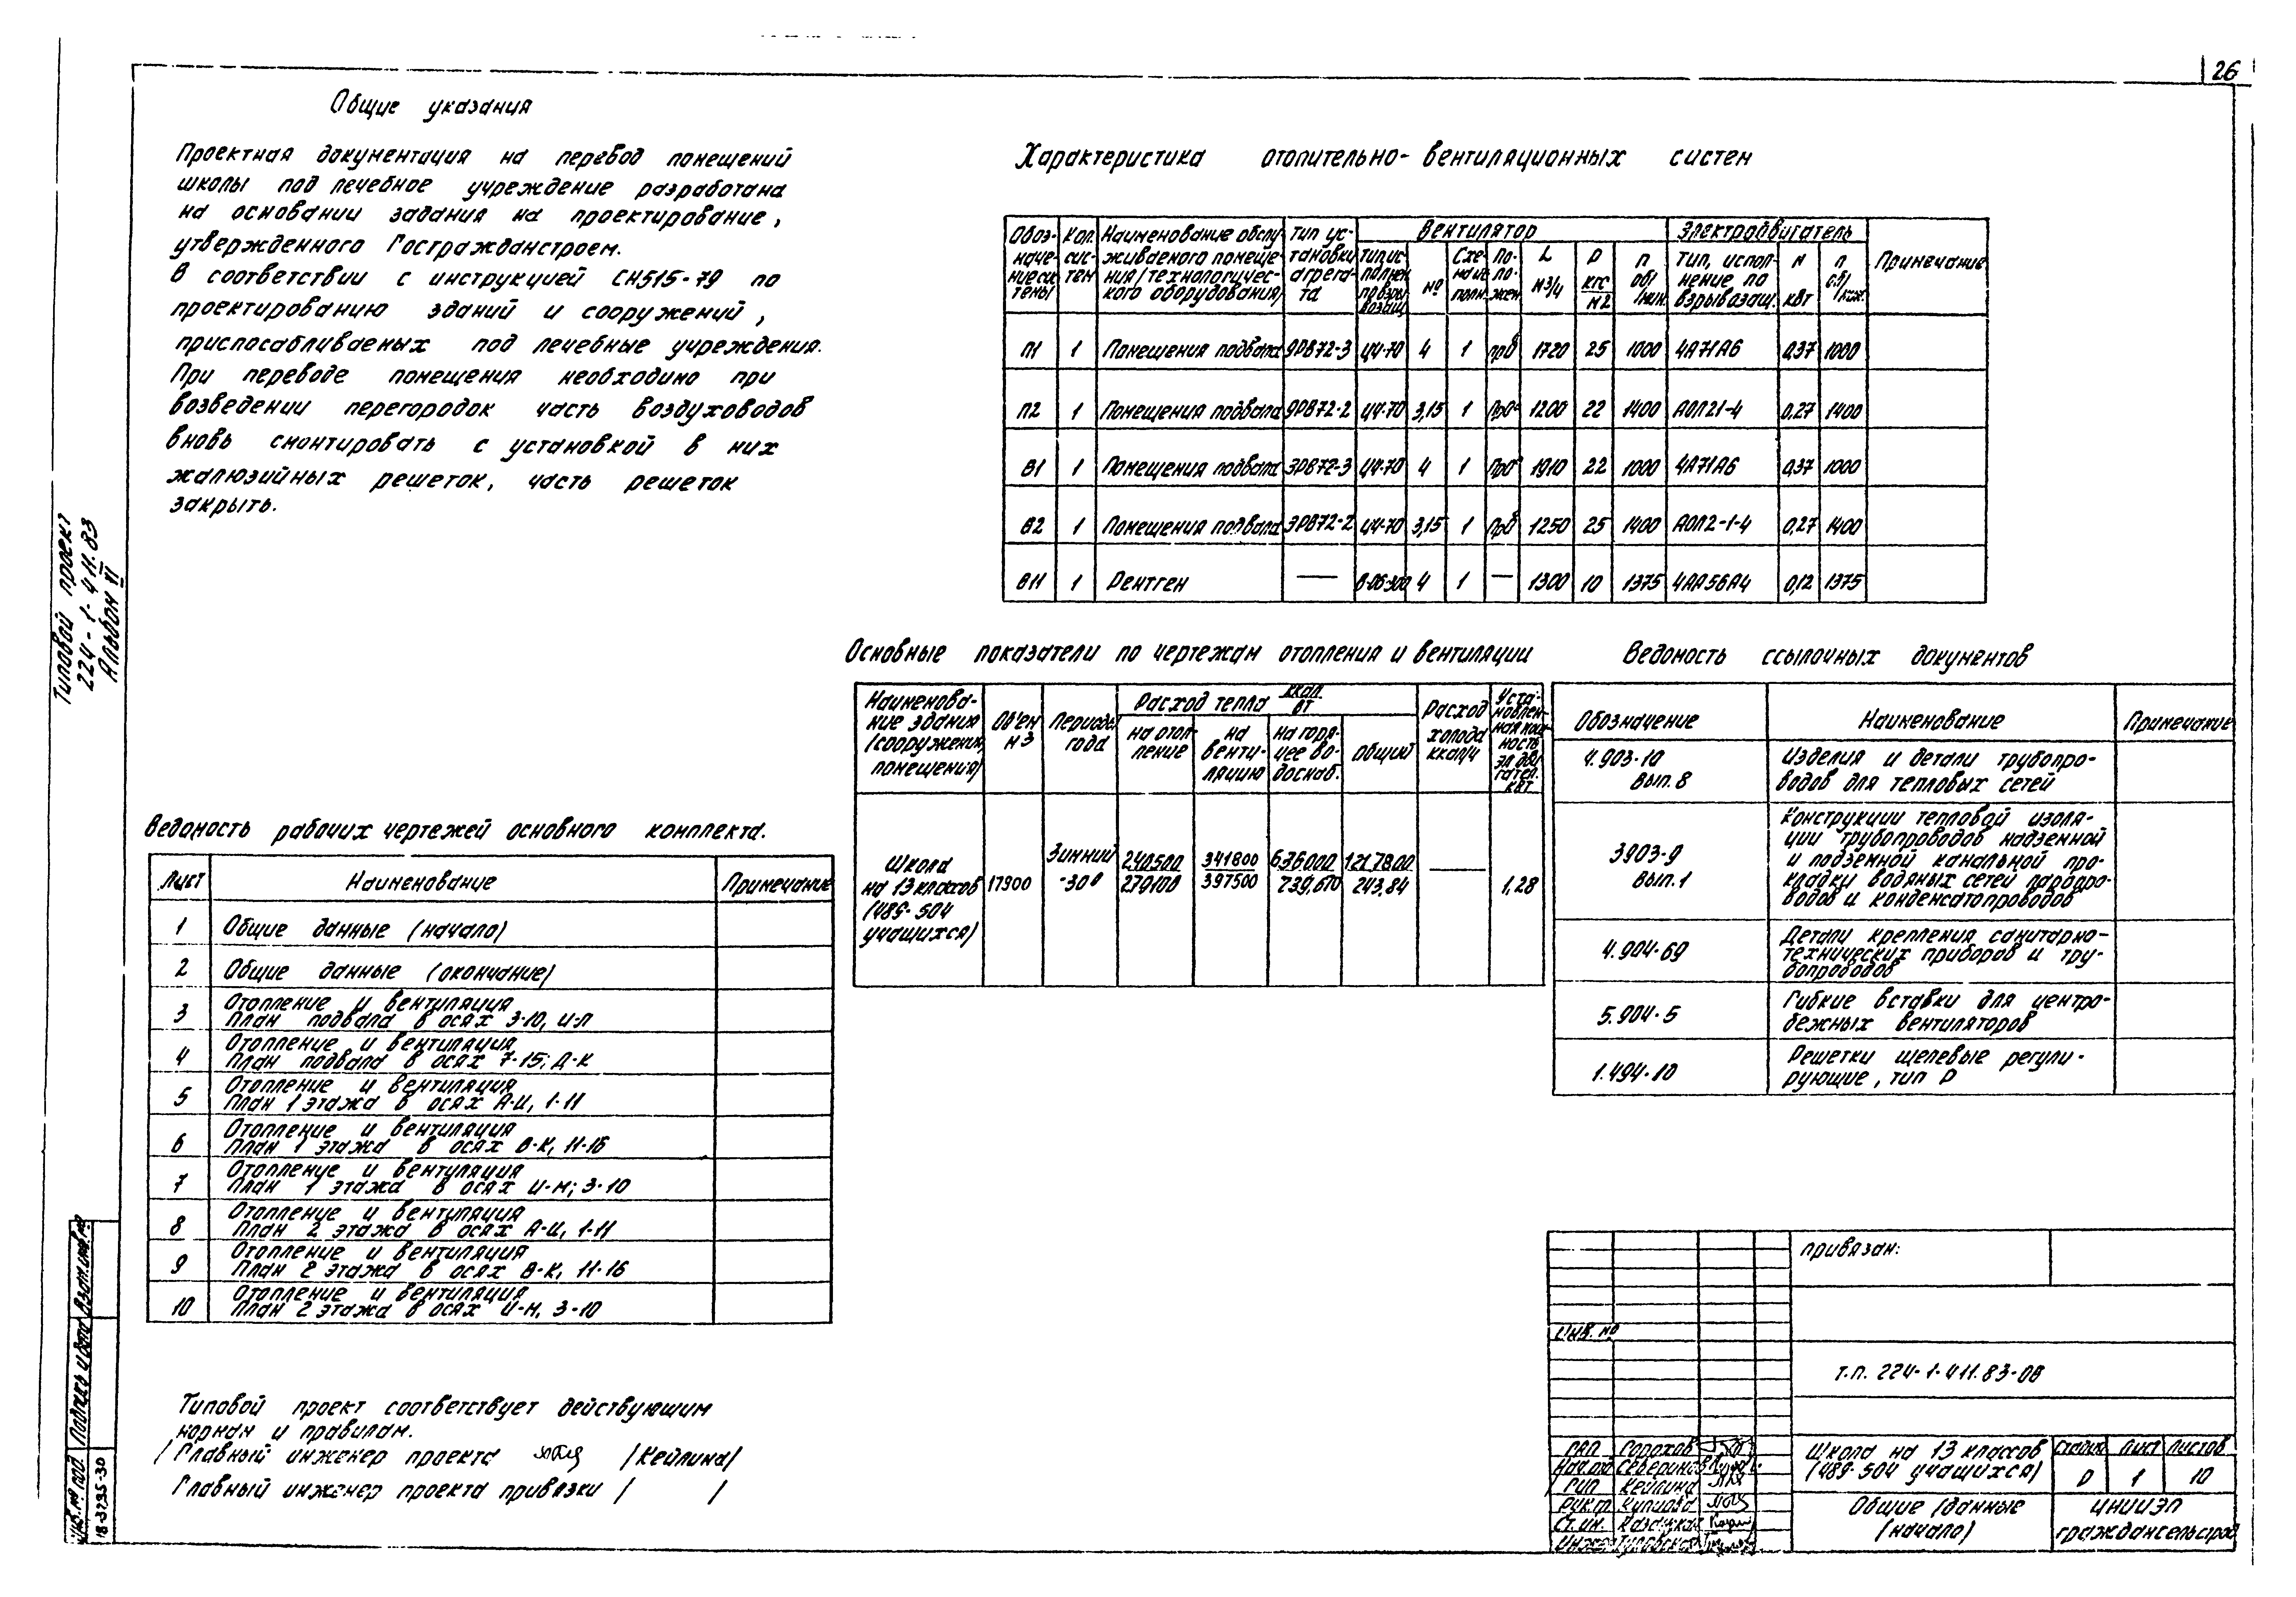 26
Общие указания
Проектная документация на перевод помещений
школы под лечебное учреждение разработана
на основании задания на проектирование,
утвержденного Госгражданстроем.
В соответствии с инструкцией СН515-79 по
проектированию зданий и сооружений,
приспосабливаемых под лечебные учреждения.
При переводе помещения необходимо при
возведении перегородок часть воздуховодов
вновь смонтировать с установкой в них
жалюзийных решеток, часть решеток
закрыть.
Типовой проект
224-1-411.83
Альбом VI
Характеристика отопительно-вентиляционных систем
Обоз-начение системы | Кол. сис-тем | Наименование обслуживаемого помещения (технологического оборудования) | Тип установки агрегата | Вентилятор | Электродвигатель | Примечание
Тип, испол-нение по взрывозащ. | № | Схема исполн. | Положен. | L м3/ч | Р кгс/м2 | n об/мин. | Тип, испол-нение по взрывозащ. | N кВт | n об/мин.
П1 1 Помещения подвала ЭРВ72-3 Ц4-70 4 1 1720 25 1000 4А71А6 0,37 1000
П2 1 Помещения подвала ЭРВ72-2 Ц4-70 3,15 1 1200 22 1400 АОЛ21-4 0,27 1400
В1 1 Помещения подвала ЭРВ72-3 Ц4-70 4 1 1910 22 1000 4А71А6 0,37 1000
В2 1 Помещения подвала ЭРВ72-2 Ц4-70 3,15 1 1250 25 1400 АОЛ2-1-4 0,27 1400
В11 1 Рентген — В-06-300 4 1 — 1300 10 1375 4АА56А4 0,12 1375
Основные показатели по чертежам отопления и вентиляции
Наименова-ние здания (сооружения, помещения) | Об'ем м3 | Периоды года | Расход тепла ккал/Вт | Расход холода ккал/ч | Установлен-ная мощ-ность эл.двигател. кВт
на отоп-ление | на венти-ляцию | на горя-чее во-доснаб. | общий
Школа
на 13 классов
(489-504
учащихся)
17900
Зимний
-30°
240500 341800 636000 1217800 —
279100 397500 739,670 243,84 1,28
Ведомость ссылочных документов
Обозначение Наименование Примечание
4.903-10
вып. 8
Изделия и детали трубопро-
водов для тепловых сетей
3903-9
вып. 1
Конструкции тепловой изоля-
ции трубопроводов надземной
и подземной канальной про-
кладки водяных сетей паропро-
водов и конденсатопроводов
4.904-69
Детали крепления санитарно-
технических приборов и тру-
бопроводов
5.904-5
Гибкие вставки для центро-
бежных вентиляторов
1.494-10
Решетки щелевые регули-
рующие, тип Р
Ведомость рабочих чертежей основного комплекта.
Лист Наименование Примечание
1 Общие данные (начало)
2 Общие данные (окончание)
3 Отопление и вентиляция
План подвала в осях 3-10, И-Л
4 Отопление и вентиляция
План подвала в осях 7-15; Д-К
5 Отопление и вентиляция
План 1 этажа в осях А-И, 1-11
6 Отопление и вентиляция
План 1 этажа в осях В-К, 11-16
7 Отопление и вентиляция
План 1 этажа в осях И-М; 3-10
8 Отопление и вентиляция
План 2 этажа в осях А-И, 1-11
9 Отопление и вентиляция
План 2 этажа в осях В-К, 11-16
10 Отопление и вентиляция
План 2 этажа в осях И-М, 3-10
Типовой проект соответствует действующим
нормам и правилам.
/Главный инженер проекта /Кейлина/
Главный инженер проекта привязки / /
Инв. № под.
18-3295-30
Подпись и дата
Взам.инв.№
привязан:
Инв. №
т.п. 224-1-411.83-ОВ
ГАП Горохов
Нач.отд Северинов
ГИП Кейлина
Рук.гр. Купцова
Ст.ин. Казацкая
Инже
Школа на 13 классов
(489-504 учащихся)
Стадия Лист Листов
Р 1 10
Общие данные
(начало)
ЦНИИЭП
граждансельстрой